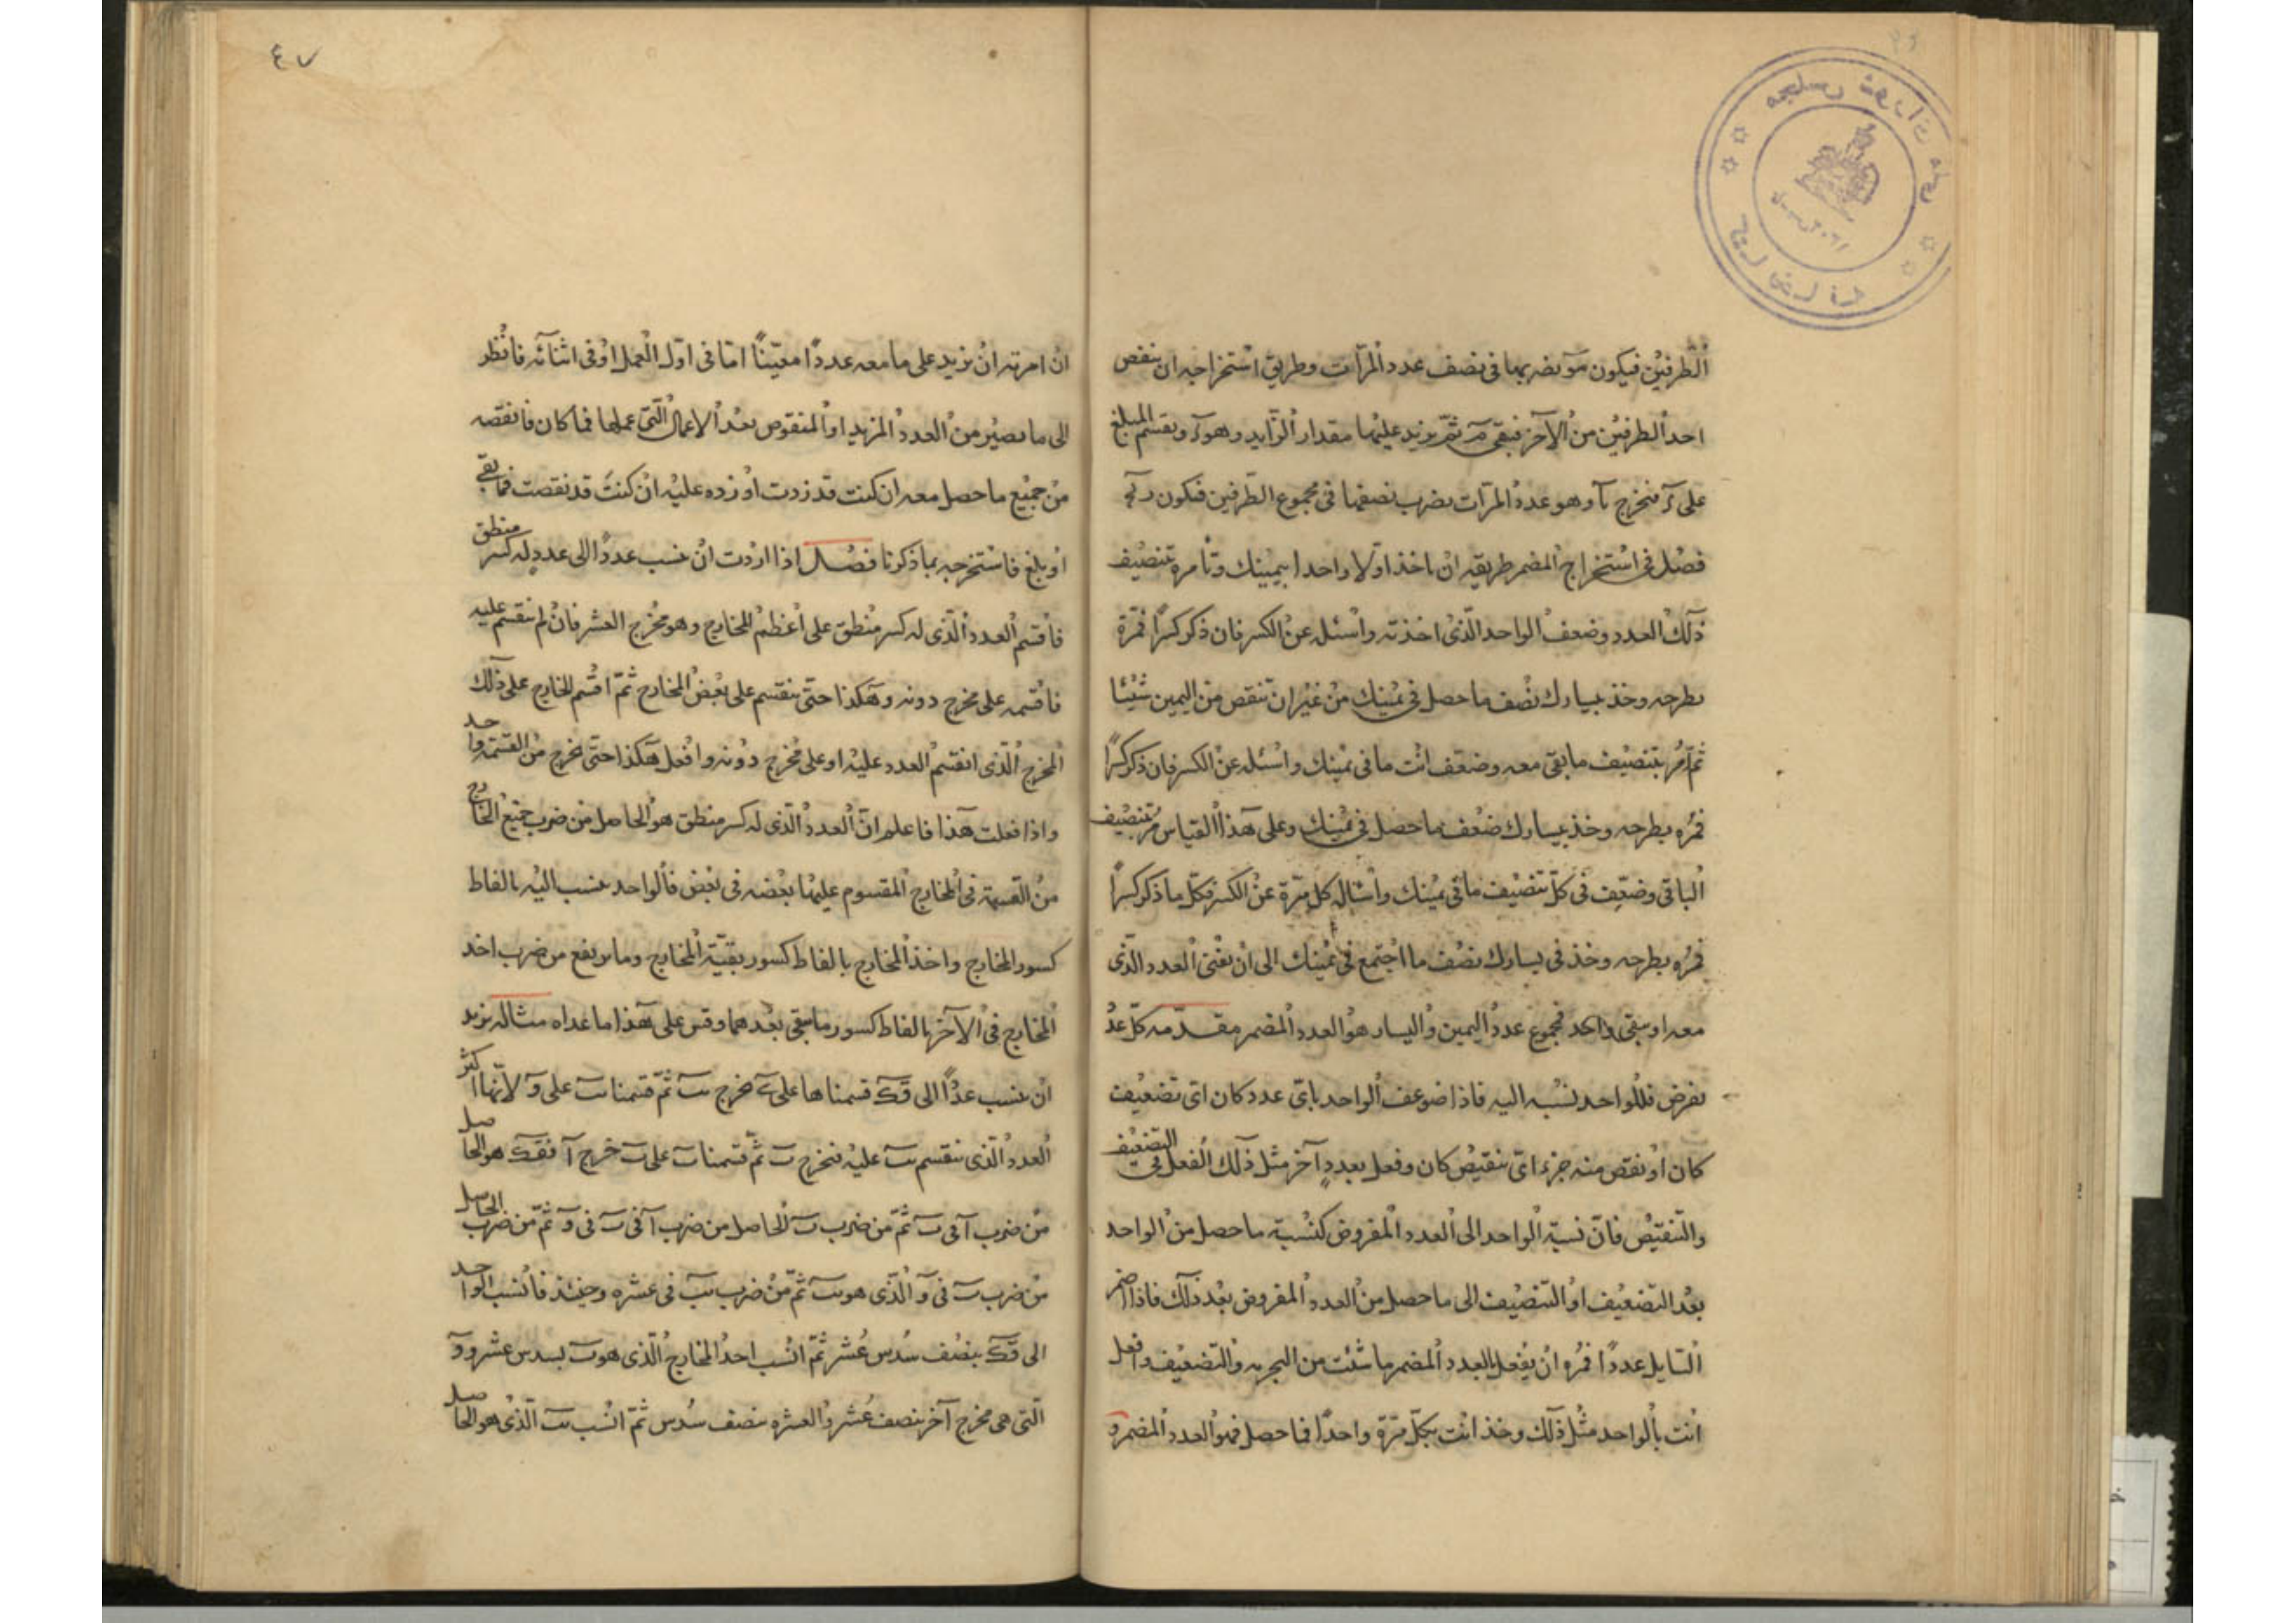 ٤٧
الطرفين فيكون مو نضربها فى نصف عدد المرّات وطريق استخراجه ان ينقص
احد الطرفين من الآخر فيبقى ثمّ يزيد عليها مقدار الزّايد وهو ويقسم المبلغ
على فيخرج وهو عدد المرّات يضرب نصفها فى مجموع الطّرفين فيكون
فصل فى استخراج المضمر طريقه ان تاخذ اولا واحدا بيمينك وتأمره بتنصيف
ذلك العدد وضعف الواحد الّذى اخذته واسئله عن الكسر فان ذكر كسرًا فمره
بطرحه وخذ بيسارك نصف ما حصل فى يمينك من غير ان تنقص من اليمين شيئا
ثمّ مر بتنصيف ما بقى معه وضعّف انت ما فى يمينك واسئله عن الكسر فان ذكر كسرًا
فمره بطرحه وخذ بيسارك ضعف ما حصل فى يمينك وعلى هذا القياس مر بتنصيف
الباقى وضعّف فى كلّ تنصيف ما فى يمينك واساله كل مرّة عن الكسر فكلّ ما ذكر كسرًا
فمره بطرحه وخذ فى يسارك نصف ما اجتمع فى يمينك الى ان يفنى العدد الّذى
معه او يبقى واحد فمجموع عدد اليمين واليسار هو العدد المضمر مقدّمه كلّ عدد
نفرض فللواحد نسبه اليه فاذا ضوعف الواحد باىّ عدد كان اىّ تضعيف
كان او نقص منه جزء اىّ تنقيص كان وفعل بعددٍ آخر مثل ذلك الفعل فى التضعيف
والتّنقيص فانّ نسبة الواحد الى العدد المفروض كنسبة ما حصل من الواحد
بعد التّضعيف او التنصيف الى ما حصل من العدد المفروض بعد ذلك فاذا اضمر
السّايل عددًا فمره ان يفعل بالعدد المضمر ما شئت من التجربه والتّضعيف وافعل
انت بالواحد مثل ذلك وخذ انت بكلّ مرّة واحدًا فما حصل فهو العدد المضمر و
ان امرته ان يزيد على ما معه عددًا معيّنًا امّا فى اوّل العمل او فى اثنائه فانظر
الى ما يصير من العدد المزيد او المنقوص بعد الاعمال الّتى عملها فما كان فانقصه
من جميع ما حصل معه ان كنت قد زدت او زده عليه ان كنت قد نقصت فما بقى
او بلغ فاستخرجه بما ذكرنا فصل اذا اردت ان تنسب عددًا الى عددٍ له كسر منطق
فاقسم العدد الّذى له كسر منطق على اعظم المخارج وهو مخرج العشر فان لم ينقسم عليه
فاقسمه على مخرج دونه وهكذا حتّى ينقسم على بعض المخارج ثمّ اقسم الخارج على ذلك
المخرج الّذى انقسم العدد عليه او على مخرج دونه وافعل هكذا حتّى يخرج من القسمة واحد
واذا فعلت هذا فاعلم انّ العدد الّذى له كسر منطق هو الحاصل من ضرب جميع الخارج
من القسمة فى المخارج المقسوم عليها بعضه فى بعض فالواحد ينسب اليه بالفاظ
كسور المخارج واخذ المخارج بالفاظ كسور بقيّة المخارج وما يرتفع من ضرب احد
المخارج فى الآخر بالفاظ كسور ما يبقى بعدهما وقس على هذا ما عداه مثاله نريد
ان ننسب عددًا الى قك قسمناها على ى فخرج يب ثمّ قسمنا يب على و لانّها اكثر
العدد الّذى ينقسم يب عليه فخرج ب ثمّ قسمنا ب على ب خرج ا فقك هو الحاصل
من ضرب ا فى ب ثمّ من ضرب ب الحاصل من ضرب ا فى ب فى و ثمّ من ضرب الحاصل
من ضرب ب فى و الّذى هو يب ثمّ من ضرب يب فى عشره وحينئذ فانسب الواحد
الى قك بنصف سُدس عُشر ثمّ انسب احد المخارج الّذى هو ب بسدس عشر و و
الّتى هى مخرج آخر بنصف عُشر والعشره بنصف سُدس ثمّ انسب يب الّذى هو الحاصل